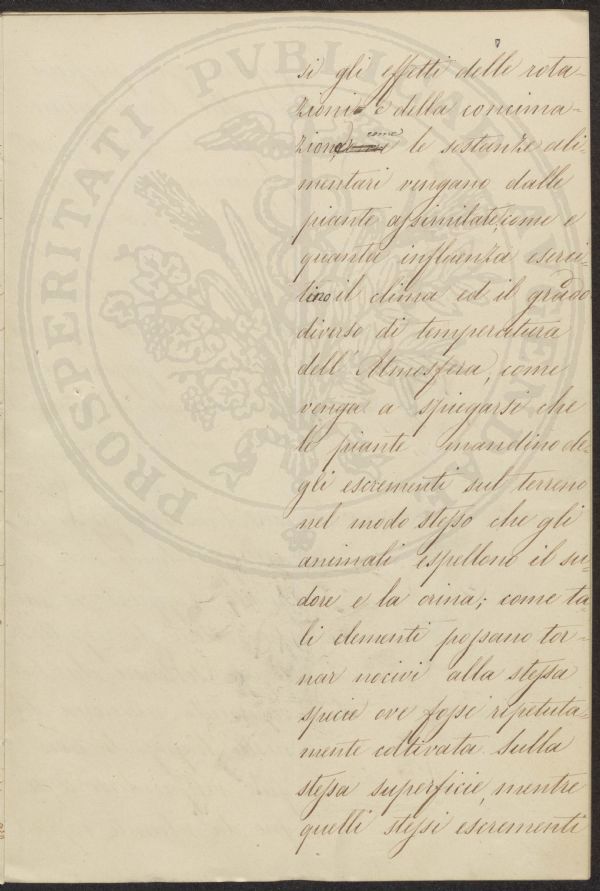 si gli effetti delle rota-
zioni e della concima-
zione, come le sostanze ali-
mentari vengano dalle
piante assimilate, come e
quanta influenza eserci-
tino il clima ed il grado
diverso di temperatura
dell'Atmosfera, come
venga a spiegarsi che
le piante mandino de-
gli escrementi sul terreno
nel modo stesso che gli
animali espellono il su-
dore e la orina; come ta-
li elementi possano tor-
nar nocivi alla stessa
specie ove fosse repetuta-
mente coltivata sulla
stessa superficie, mentre
quelli stessi escrementi
PROSPERITATI PVBLICAE AVGENDAE